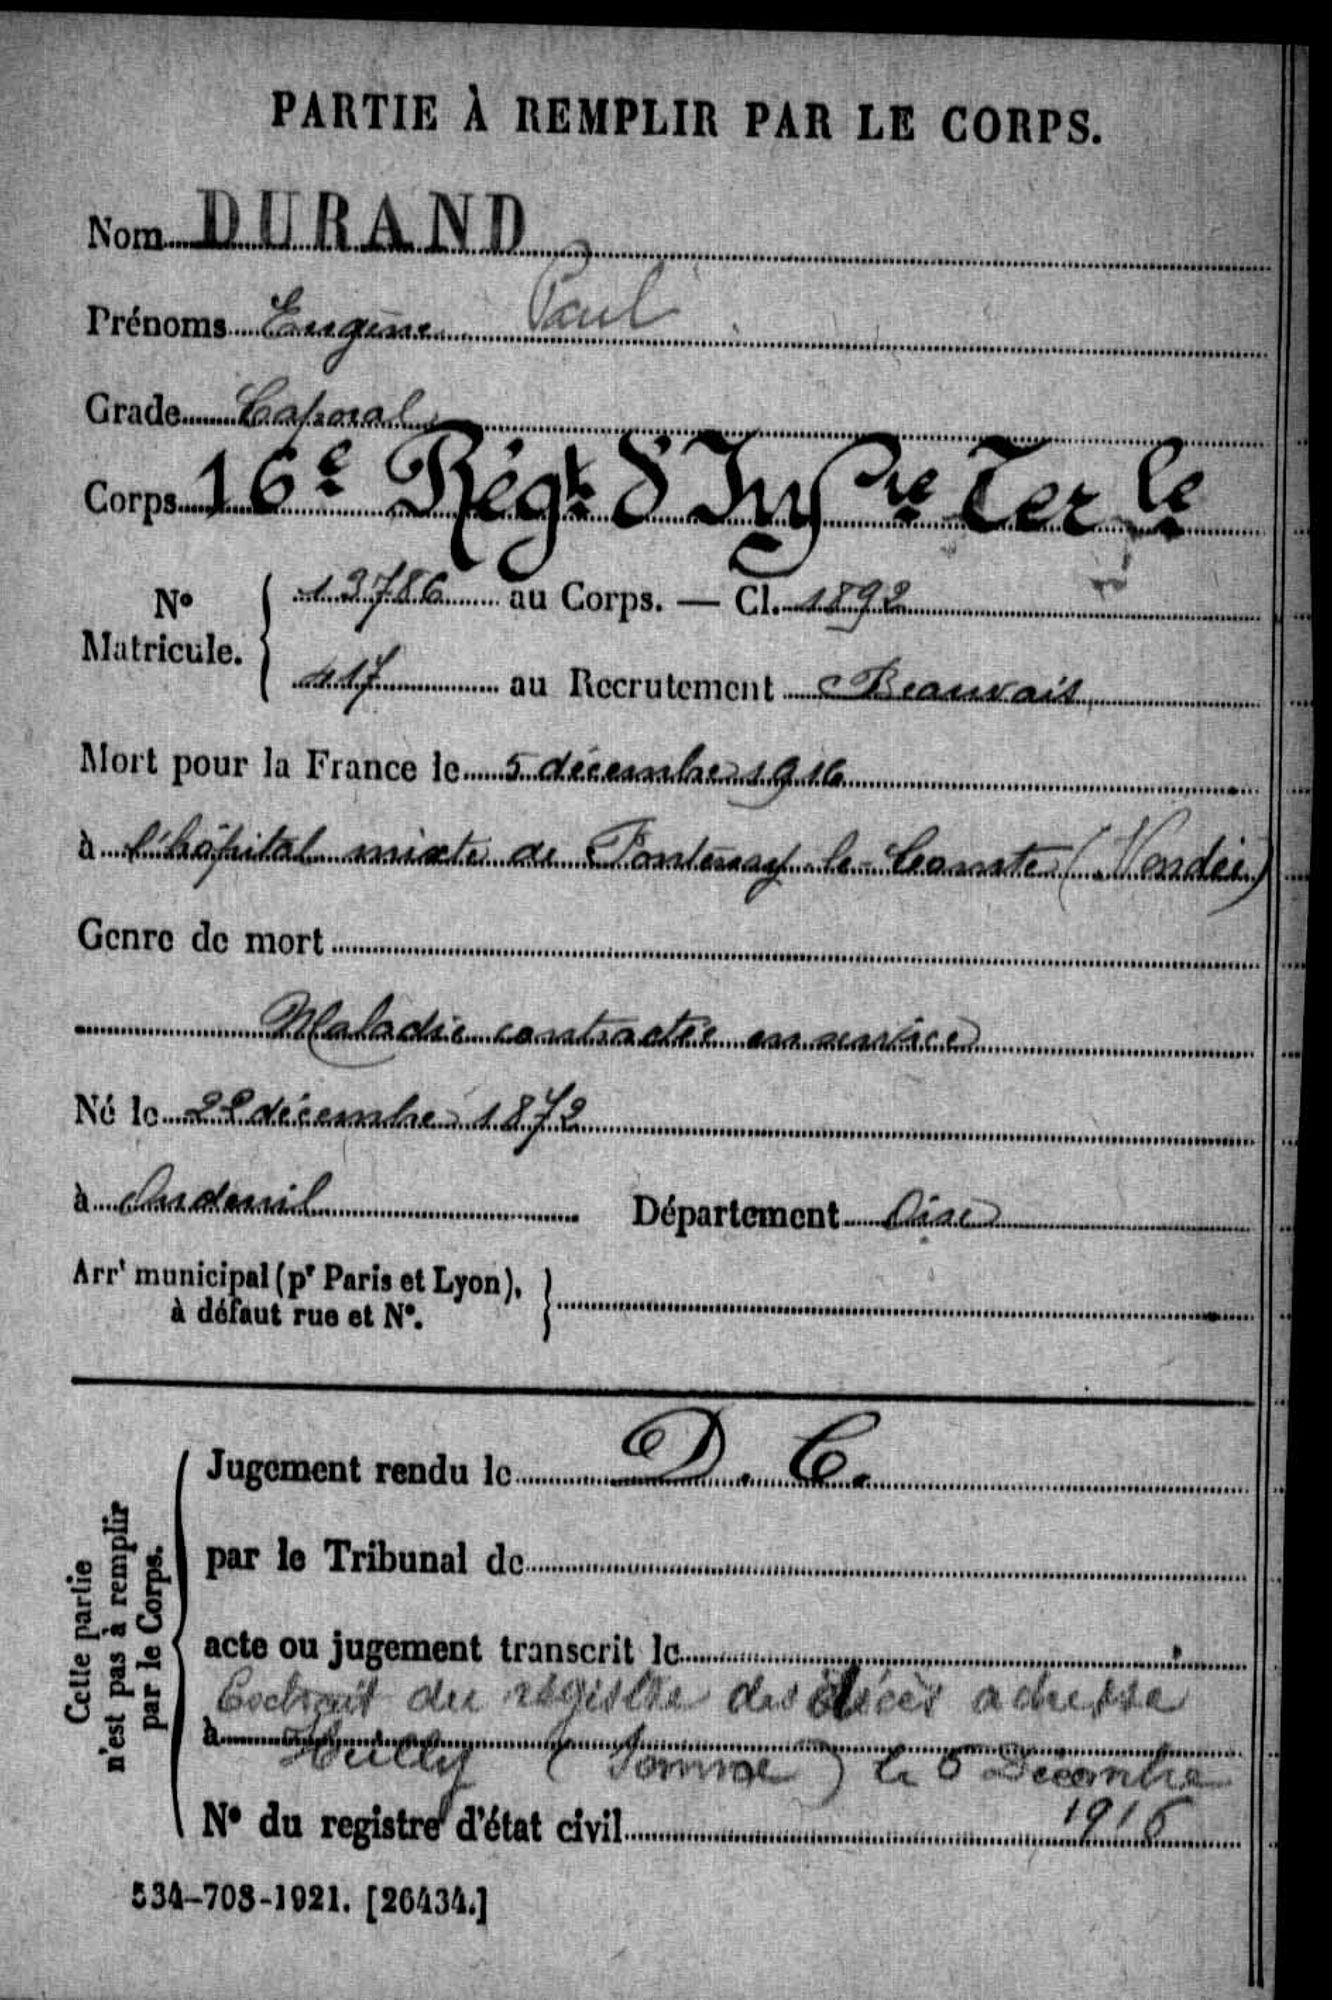 PARTIE À REMPLIR PAR LE CORPS.
Nom DURAND
Prénoms Eugène Paul
Grade Caporal
Corps 16e Régt d'Infrie Terle
No Matricule. 13786 au Corps. — Cl. 1892
417 au Recrutement Beauvais
Mort pour la France le 5 décembre 1916
à l'hôpital mixte de Fontenay-le-Comte (Vendée)
Genre de mort
Maladie contractée en service
Né le 22 décembre 1872
à Département Oise
Arrt municipal (pr Paris et Lyon),
à défaut rue et No.
Cette partie n'est pas à remplir par le Corps.
Jugement rendu le D. C.
par le Tribunal de
acte ou jugement transcrit le
Extrait du registre des décès adressé
à (Somme) le 5 Décembre
1916
No du registre d'état civil
534-708-1921. [26434.]